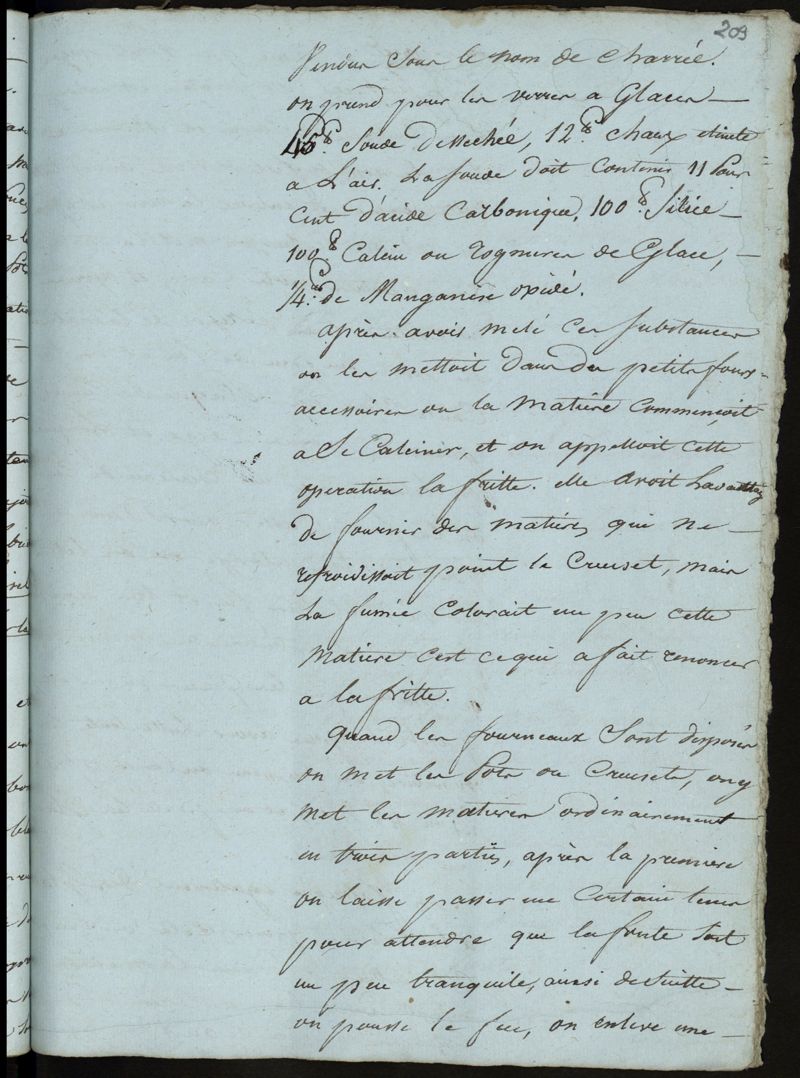 209
Vendus sous le nom de charrée.
on prend pour les verres a Glaces —
45 ℔. Soude dessechée, 12 ℔. chaux eteinte
a L'air. La soude doit contenir 11 Pour
Cent d'acide Carbonique, 100 ℔. Silice —
100 ℔ Calcin ou rognures de Glace, —
1/4 de Manganèse oxidé.
après avoir melé ces substances
on les mettoit dans des petits fours
accessoires ou la matière commençoit
a Se Calciner, et on appelloit cette
operation la fritte. elle avoit L'avantage
de fournir des matières qui ne —
refroidissoit point le Creuset, mais
La fumée Colorait un peu cette
matiere c'est ce qui a fait renoncer
a la fritte.
quand les fourneaux Sont disposés
on met les Pots ou Creusets, on y
met les matieres ordinairement
en trois parties, après la premiere
on laisse passer un Certain tems
pour attendre que la fonte soit
un peu tranquile, ainsi de Suitte —
on pousse le feu, on enleve une —